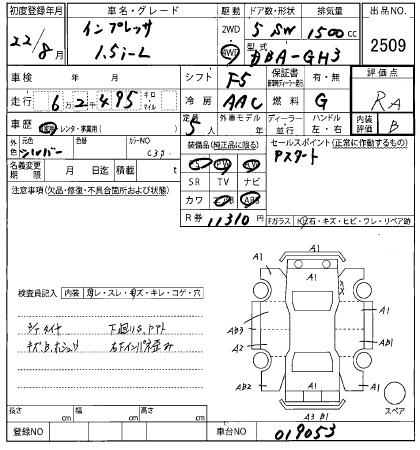 初度登録年月
車名・グレード
駆動
ドア数・形状
排気量
出品NO.
22/8月
インプレッサ
1.5i-L
2WD
4WD
5 SW
1500cc
型式
DBA-GH3
2509
車検 年 月
シフト F5
保証書
有・無
評価点
RA
走行 6万2千495 キロ マイル
冷房 AAC
燃料 G
車歴
レンタ・事業用( )
定員 5人
外車モデル
年
ディーラー・並行
ハンドル
左・右
内装評価 B
外色
元色 シルバー
色替
カラーNO C3J
装備品(純正品に限る)
セールスポイント(正常に作動するもの)
Pスタート
名義変更期限 月 日迄
積載 t
PS PW AW
SR TV ナビ
カワ エアB ABS
R券 11310 円
注意事項(欠品・修復・不具合箇所および状態)
Fガラス
石・キズ・ヒビ・ワレ・リペア跡
検査員記入
内装
スレ・キズ・キレ・コゲ・穴
下廻りS
キズ、B、ホシュウ
A1
A1
A1
A1
AB3
A2
AB1
AB2
A1
A3 B1
スペア
長さ cm
幅 cm
高さ cm
登録NO
車台NO
019053